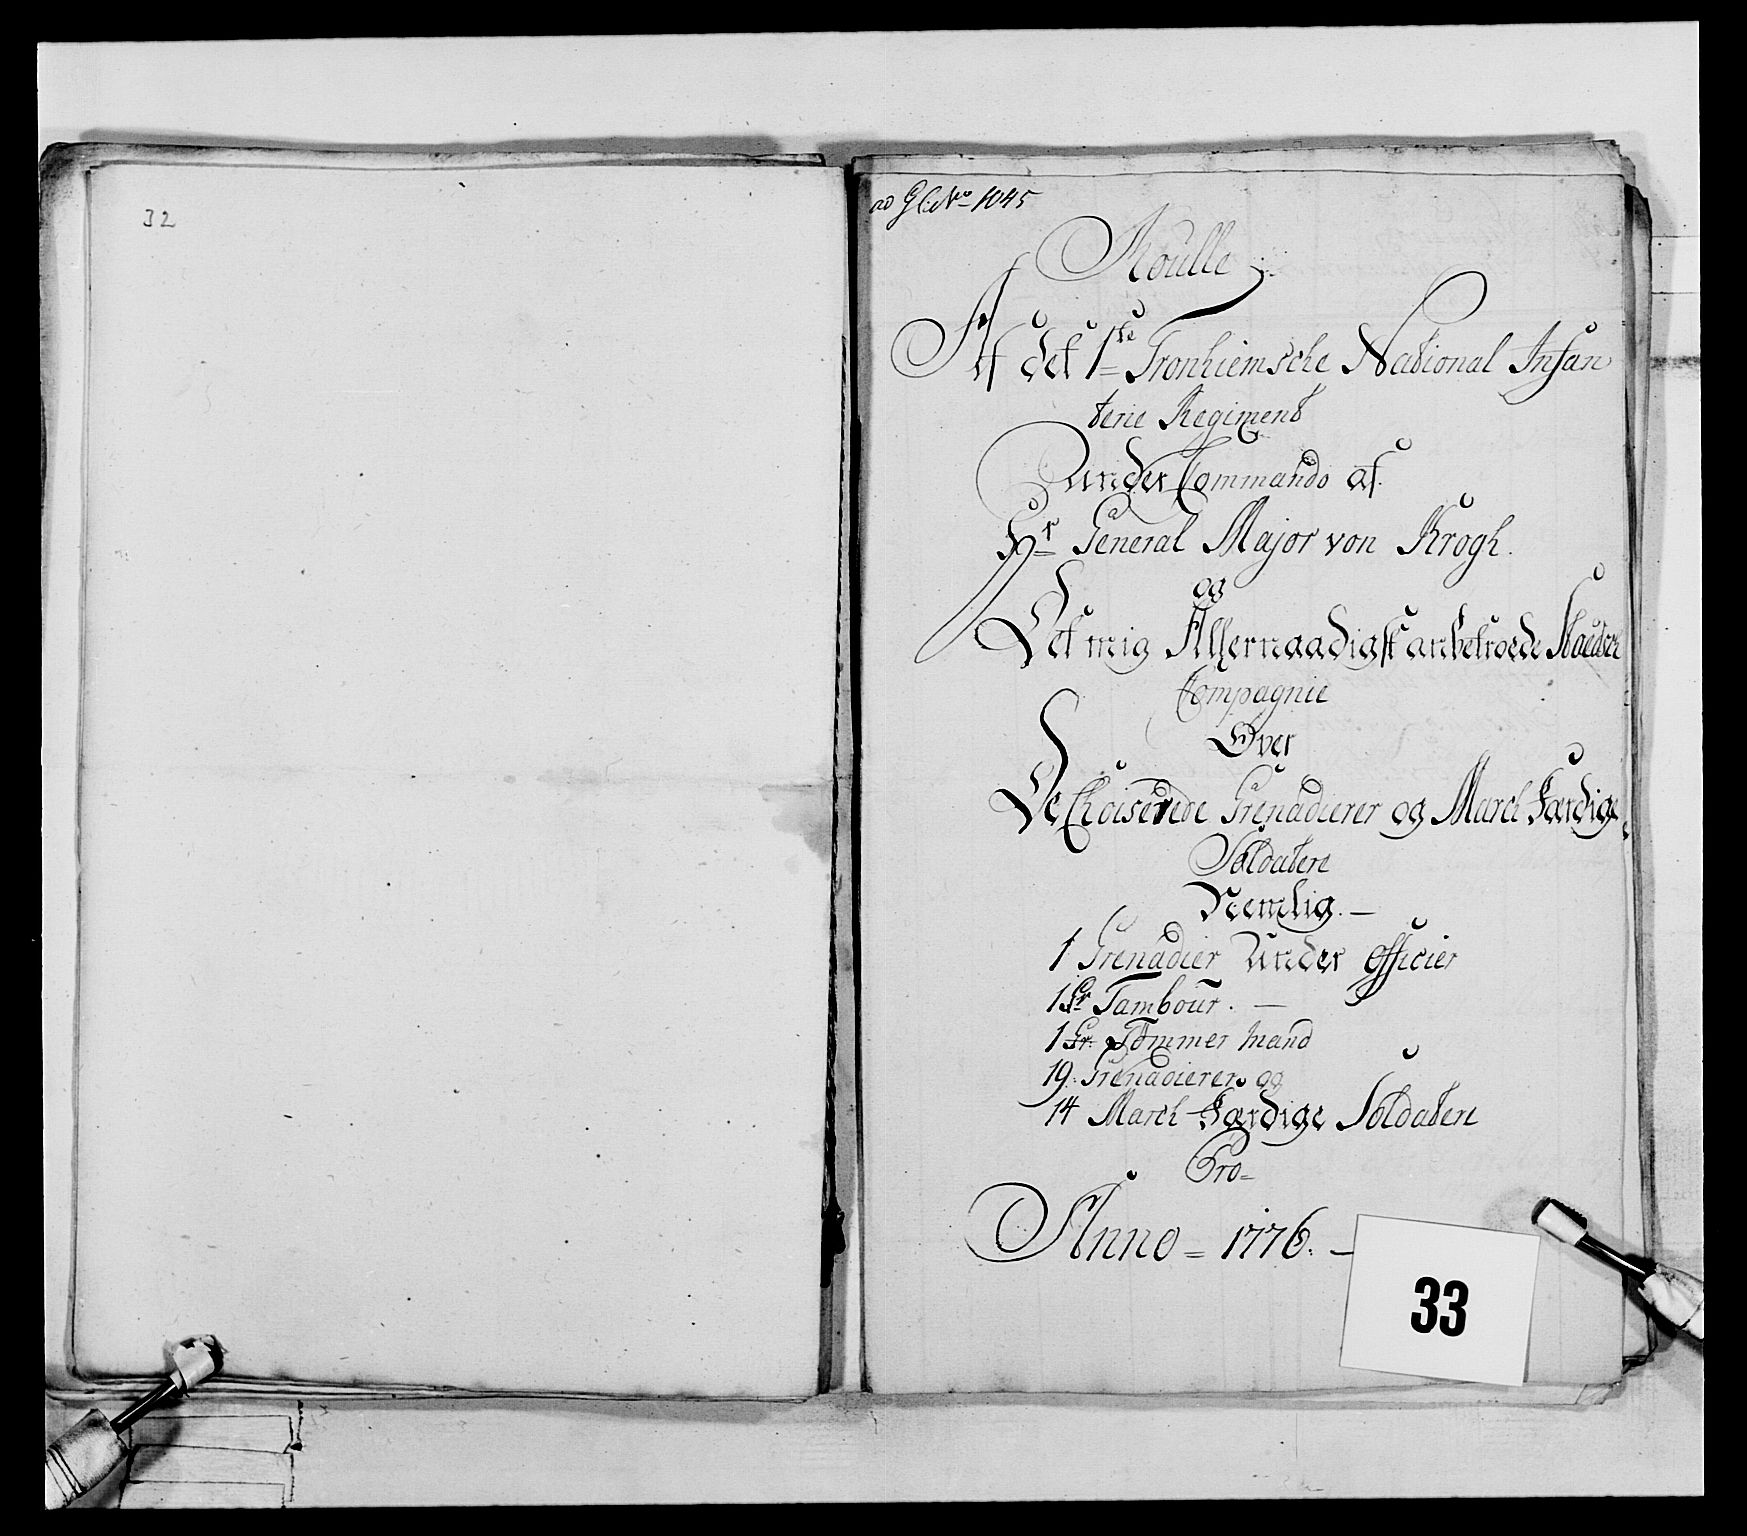 32
ad Gl: No 1045
Roulle
Af det 1ste Tronhiemsche National Infan
terie Regiment
under Commando af
Hr General Major von Krogh.
og
Det mig Allernaadigst anbetroede
Compagnie
Over
De Choiserede Grenadierer og March Færdige
Soldatere
Nemlig. —
1 Grenadier Under Officier
1 Gr Tambour. —
1 Gr: Tømmer mand
19: Grenadierer og
14 March Færdige Soldatere
Pro=
Anno = 1776. —
33